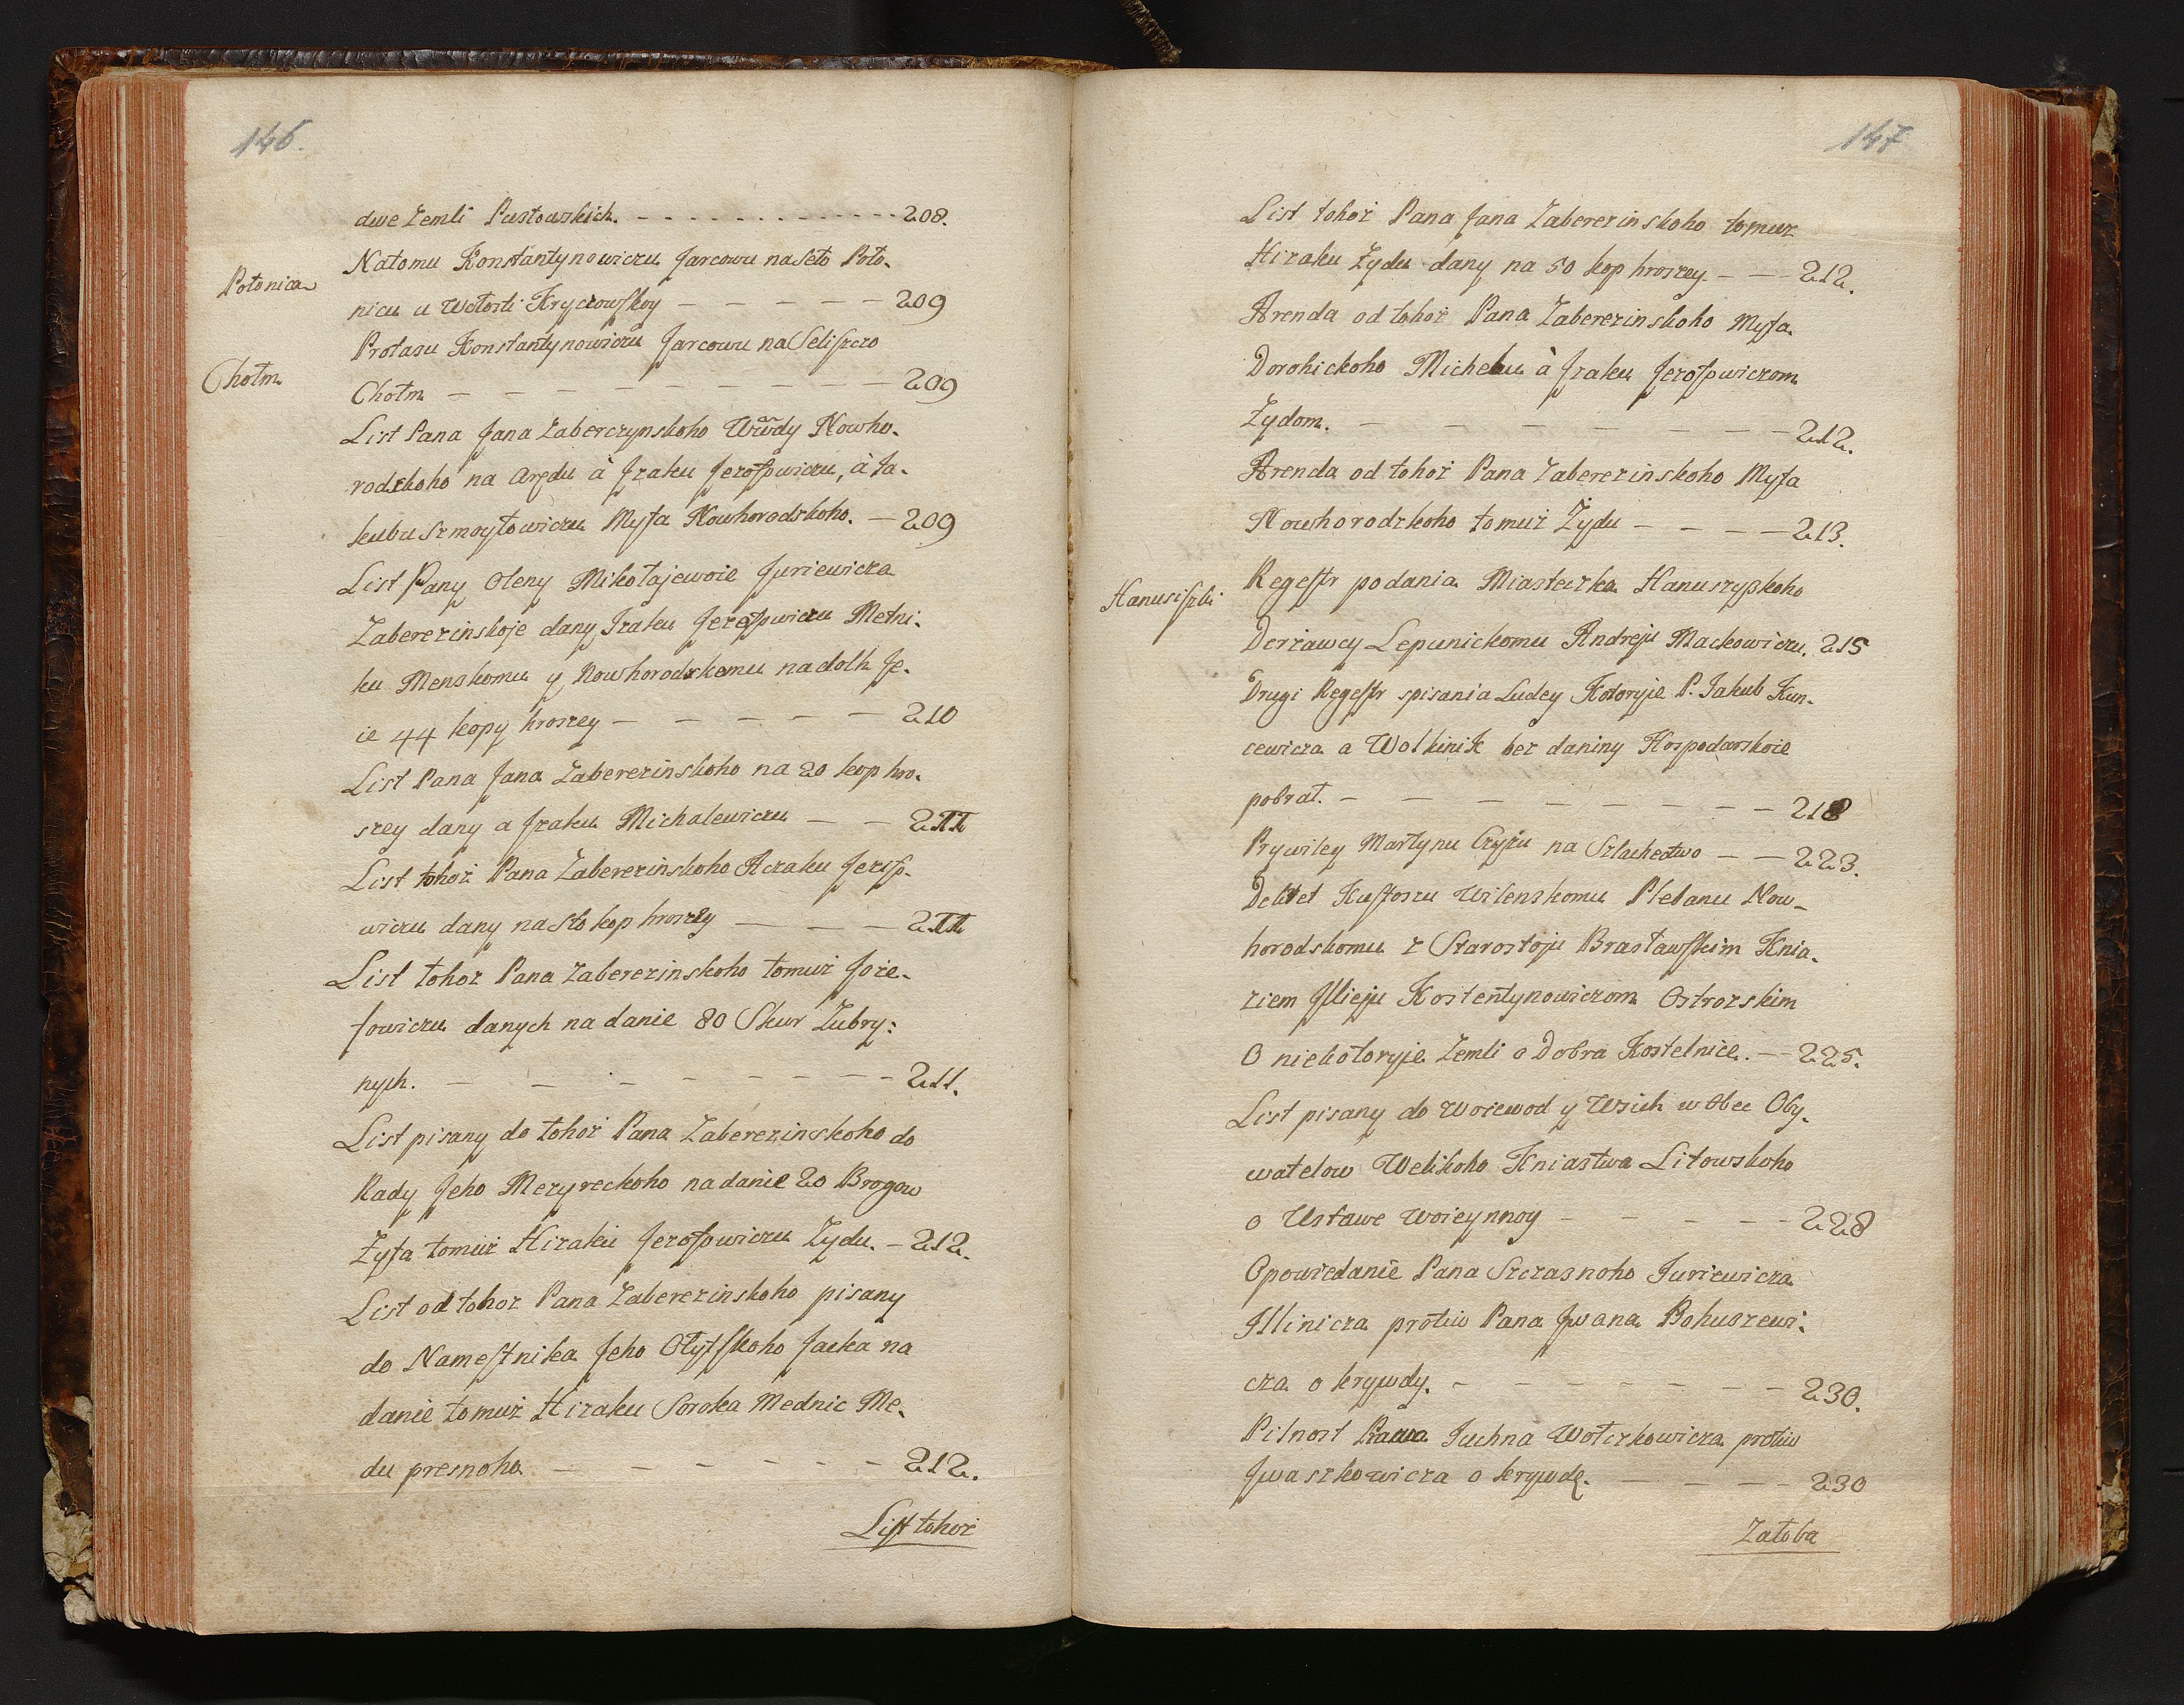 146.
dwe Zemli Pustowskich. - - - - - - - - - - - - - 208.
Natomu Konstantynowiczu Jarcowu na Seło Poło-
Połonica
nicu u Wołosti Kryczowskoy - - - - - 209
Protasu Konstantynowiczu Jarcowu na Seliszczo
Chołm
Chołm - - - - - - - - 209
List Pana Jana Zaberczynskoho Wwdy Nowho-
rodzkoho na arędu à Jzaku Jezofowiczu, à Ja-
kubu Szmoyłowiczu Myta Nowhorodskoho. - 209
List Pany Oleny Mikołajewoie Juriewicza
Zaberezinskoje dany Izaku Jezofowiczu Metni-
ku Menskomu y Nowhorodzkomu na dolh Je-
ie 44 kopy hroszey - - - - - 210
List Pana Jana Zaberezinskoho na 20 kop hro-
szey dany a Jzaku Michalewiczu - - 211
List tohoż Pana Zaberezinskoho Aczaku Jezif-
wiczu dany na sto kop hroszey - - - 211
List tohoż Pana Zaberezinskoho tomuż Joze-
fowiczu danych na danie 80 Skur Zubry-
nych. - - - - - - - - 211.
List pisany do tohoż Pana Zaberezinskoho do
Rady Jeho Mezyreckoho na danie 20 Brogow
Żyta tomuż Hizaku Jezofowiczu Żydu. - 212.
List od tohoż Pana Zaberezinskoho pisany
do Namestnika Jeho Ołytskoho Jacka na
danie tomuż Hizaku Soroka Mednic Me-
du presnoho - - - - - - 212.
List tohoż
147
List tohoż Pana Jana Zaberezinskoho tomuż
Hizaku Żydu dany na 50 kop hroszey. - - - 212.
Arenda od tohoż Pana Zaberezinskoho Myta
Dorohickoho Michelu à Jzaku Jezofowiczom
Żydom. - - - - - - - 212.
Arenda od tohoż Pana Zaberezinskoho Myta
Nowhorodzkoho tomuż Żydu - - - - 213.
Hanusiszki
Regestr podania Miasteczka Hanuszyskoho
Derżawcy Lepunickomu Andreju Mackowiczu. 215
Drugi Regestr spisania Ludey Kotoryje P. Jakub Kun-
cewicza a Wolkinik bez daniny Hospodarskoie
pobrał. - - - - - - - - 218
Prywiley Martynu Czyżu na Szlachectwo - - 223.
Dekret Kustoszu Wilenskomu Plebanu Now-
horodskomu z Starostoju Brasławskim Knia-
ziem Jlliejm Kostentynowiczom Ostrozskim
O niekotoryje Zemli o Dobra Kostelnice. - - 225.
List pisany do Woiewod y Wsich w Obec Oby-
watelow Welikoho Kniastwa Litowskoho
o Ustawe Woieynnoy - - - - - 228
Opowiedanie Pana Szczasnoho Juriewicza
Jllinicza protiw Pana Jwana Bohuszewi-
cza o krywdy. - - - - - - - 230.
Pilnost Pana Juchna Wołczkowicza protiw
Jwaszkowicza o krywdę. - - - - 230
Żałoba